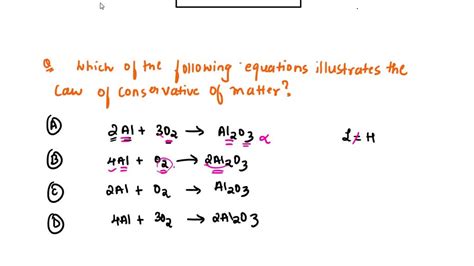 Q. Which of the following equations illustrates the
Law of Conservative of matter?
A 2Al + 3O2 → Al2O3 α L ≠ H
B 4Al + O2 → 2Al2O3
C 2Al + O2 → Al2O3
D 4Al + 3O2 → 2Al2O3